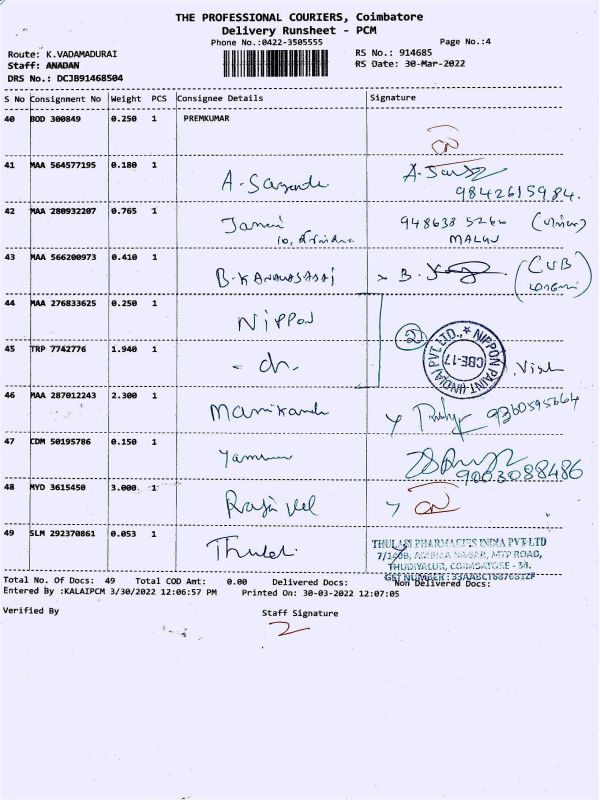 THE PROFESSIONAL COURIERS, Coimbatore
Delivery Runsheet - PCM
Phone No.:0422-3505555
Page No.:4
Route: K.VADAMADURAI
RS No.: 914685
Staff: ANADAN
RS Date: 30-Mar-2022
DRS No.: DCJB91468504
S No Consignment No Weight PCS Consignee Details Signature
40 BOD 300849 0.250 1 PREMKUMAR
CN
41 MAA 564577195 0.180 1
A. 
9842615984.
42 MAA 280932207 0.765 1
43 MAA 566200973 0.410 1
B. KANAKASABAI B. (CUB
44 MAA 276833625 0.250 1
NIPPON 2
NIPPON PAINT (INDIA) PVT LTD., CBE-17
45 TRP 7742776 1.940 1
- do.
46 MAA 287012243 2.300 1
Manikand 9360595664
47 CDM 50195786 0.150 1
9003088486
48 MYD 3615450 3.000 1
Raja Vel CN
49 SLM 292370861 0.053 1
Thulasi
THULASI PHARMACIES INDIA PVT LTD
7/140B, AMBIKA NAGAR, MTP ROAD,
THUDIYALUR, COIMBATORE - 34.
GST NUMBER:
Total No. Of Docs: 49 Total COD Amt: 0.00 Delivered Docs: Non Delivered Docs:
Entered By :KALAIPCM 3/30/2022 12:06:57 PM Printed On: 30-03-2022 12:07:05
Verified By Staff Signature
2